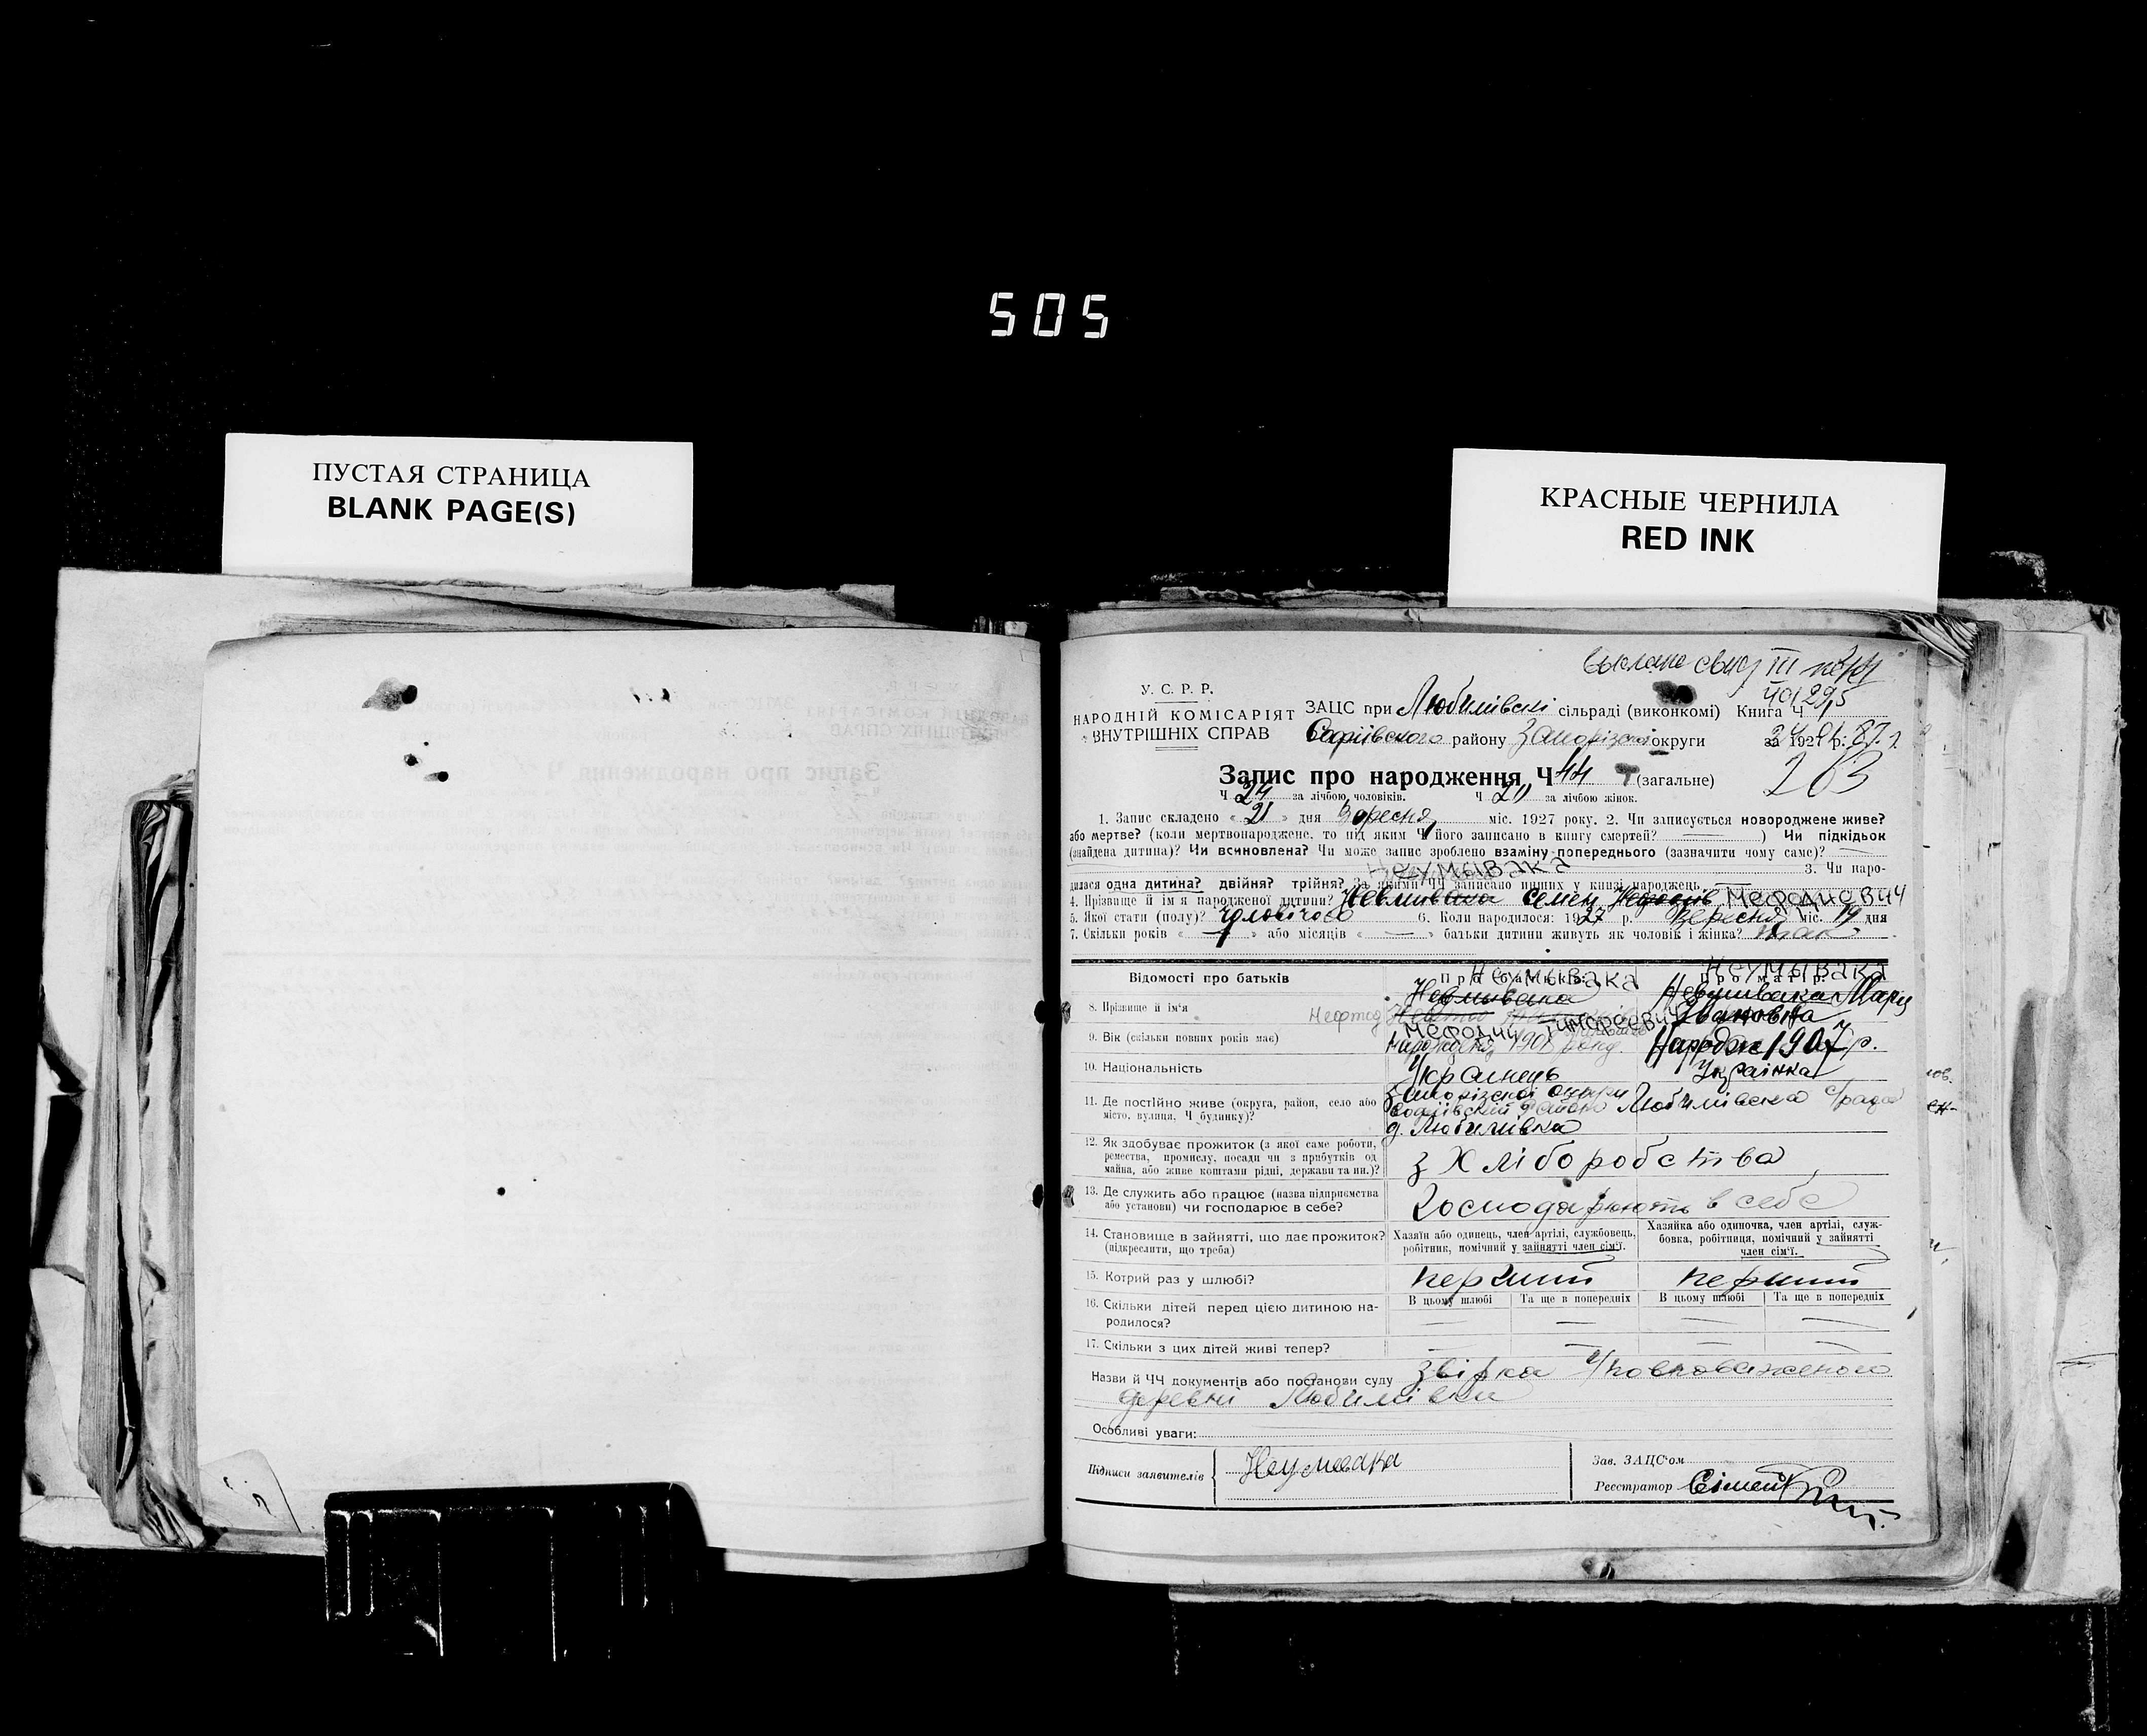 505
ПУСТАЯ СТРАНИЦА
BLANK PAGE(S)
КРАСНЫЕ ЧЕРНИЛА
RED INK
У. С. Р. Р.
НАРОДНІЙ КОМІСАРІЯТ
ВНУТРІШНІХ СПРАВ
ЗАЦС при Любимівскі сільраді (виконкомі) Книга Ч
Софіївского району Запорізької округи за 1927 р.
Запис про народження, Ч 44 (загальне)
263
Ч 24 за лічбою чоловіків. Ч 20 за лічбою жінок.
1. Запис складено « 21 » дня Вересня міс. 1927 року. 2. Чи записується новороджене живе?
або мертве? (коли мертвонароджене, то під яким Ч його записано в книгу смертей? ) Чи підкідьок
(знайдена дитина)? Чи всиновлена? Чи може запис зроблено взаміну попереднього (зазначити чому саме)?
Неумывака
3. Чи наро-
дилася одна дитина? двійня? трійня? За якими ЧЧ записано инших у книзі народжень
4. Прізвище й ім'я народженої дитини? Семен Мефодиевич
5. Якої стати (полу)? чоловічого 6. Коли народилося: 1927 р. Вересня міс. 19 дня
7. Скільки років « — » або місяців « — » батьки дитини живуть як чоловік і жінка? так
Відомості про батьків
Про батька: Про матір:
Неумывака Неумывака
8. Прізвище й ім'я
Мефодий Тимофеевич
Марія Ивановна
9. Вік (скільки повних років має)
народження 1908 року. Народж 1907 р.
10. Національність
Українець Українка
11. Де постійно живе (округа, район, село або
місто, вулиця, Ч будинку)?
Запорізскої округи
Софіївский району Любимівська с/рада
д. Любимівка
12. Як здобуває прожиток (з якої саме роботи,
ремества, промислу, посади чи з прибутків од
майна, або живе коштами рідні, держави та ин.)?
з Хліборобства
13. Де служить або працює (назва підприємства
або установи) чи господарює в себе?
Господарюють в себе
14. Становище в зайнятті, що дає прожиток?
(підкреслити, що треба)
Хазяїн або одинець, член артілі, службовець,
робітник, помічний у зайнятті член сім'ї.
Хазяйка або одиночка, член артілі, служ-
бовка, робітниця, помічний у зайнятті
член сім'ї.
15. Котрий раз у шлюбі?
перший перший
16. Скільки дітей перед цією дитиною на-
родилося?
В цьому шлюбі Та ще в попередніх В цьому шлюбі Та ще в попередніх
17. Скільки з цих дітей живі тепер?
Назви й ЧЧ документів або постанови суду звірка Уповноваженого
деревні Любимівки
Особливі уваги:
Підписи заявителів
Неумвака
Зав. ЗАЦС'ом
Реєстратор